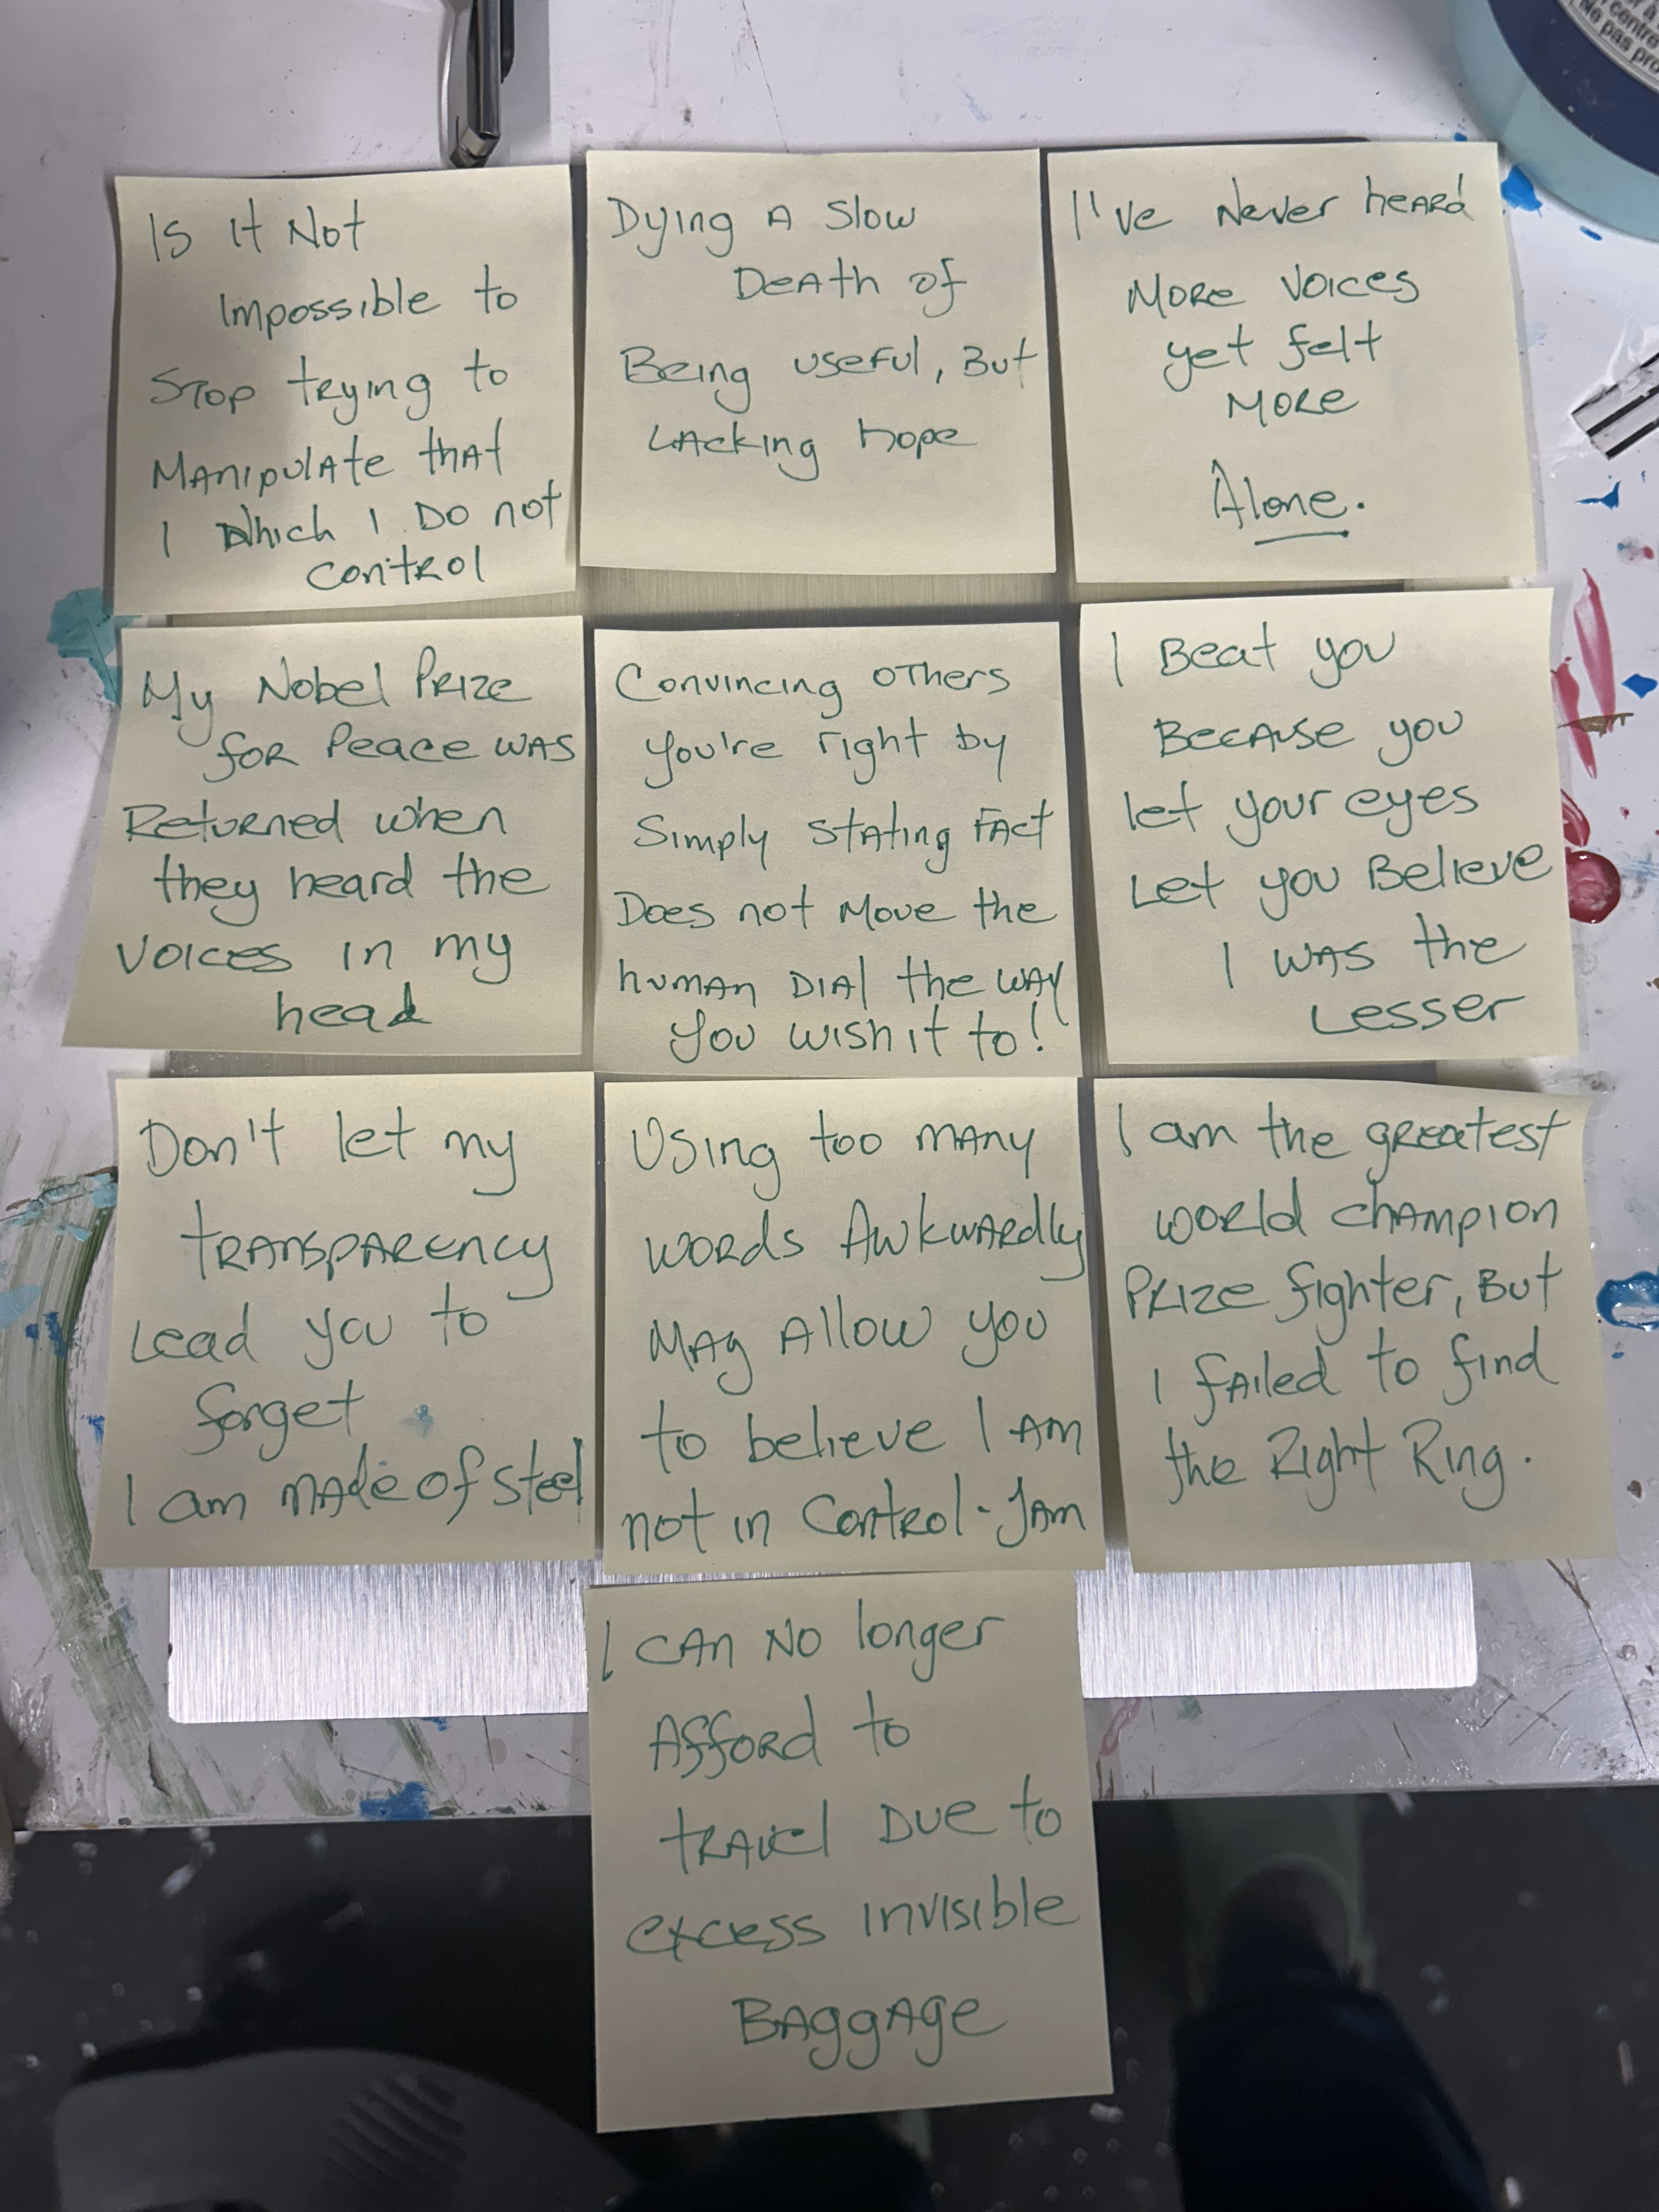 Is It Not
Impossible to
Stop trying to
Manipulate that
I Which I Do not
control
Dying A Slow
Death of
Being useful, But
Lacking hope
I've Never heard
More Voices
yet felt
More
Alone.
My Nobel Prize
for Peace was
Returned when
they heard the
Voices in my
head
Convincing others
you're right by
Simply stating Fact
Does not Move the
human Dial the way
you wish it to!
I Beat you
Because you
let your eyes
Let you Believe
I was the
Lesser
Don't let my
transparency
Lead you to
forget
I am made of steel
Using too many
words Awkwardly
May Allow you
to believe I Am
not in Control - Jam
I am the greatest
world champion
Prize fighter, But
I failed to find
the Right Ring.
I can No longer
Afford to
travel Due to
excess invisible
Baggage
ne pas